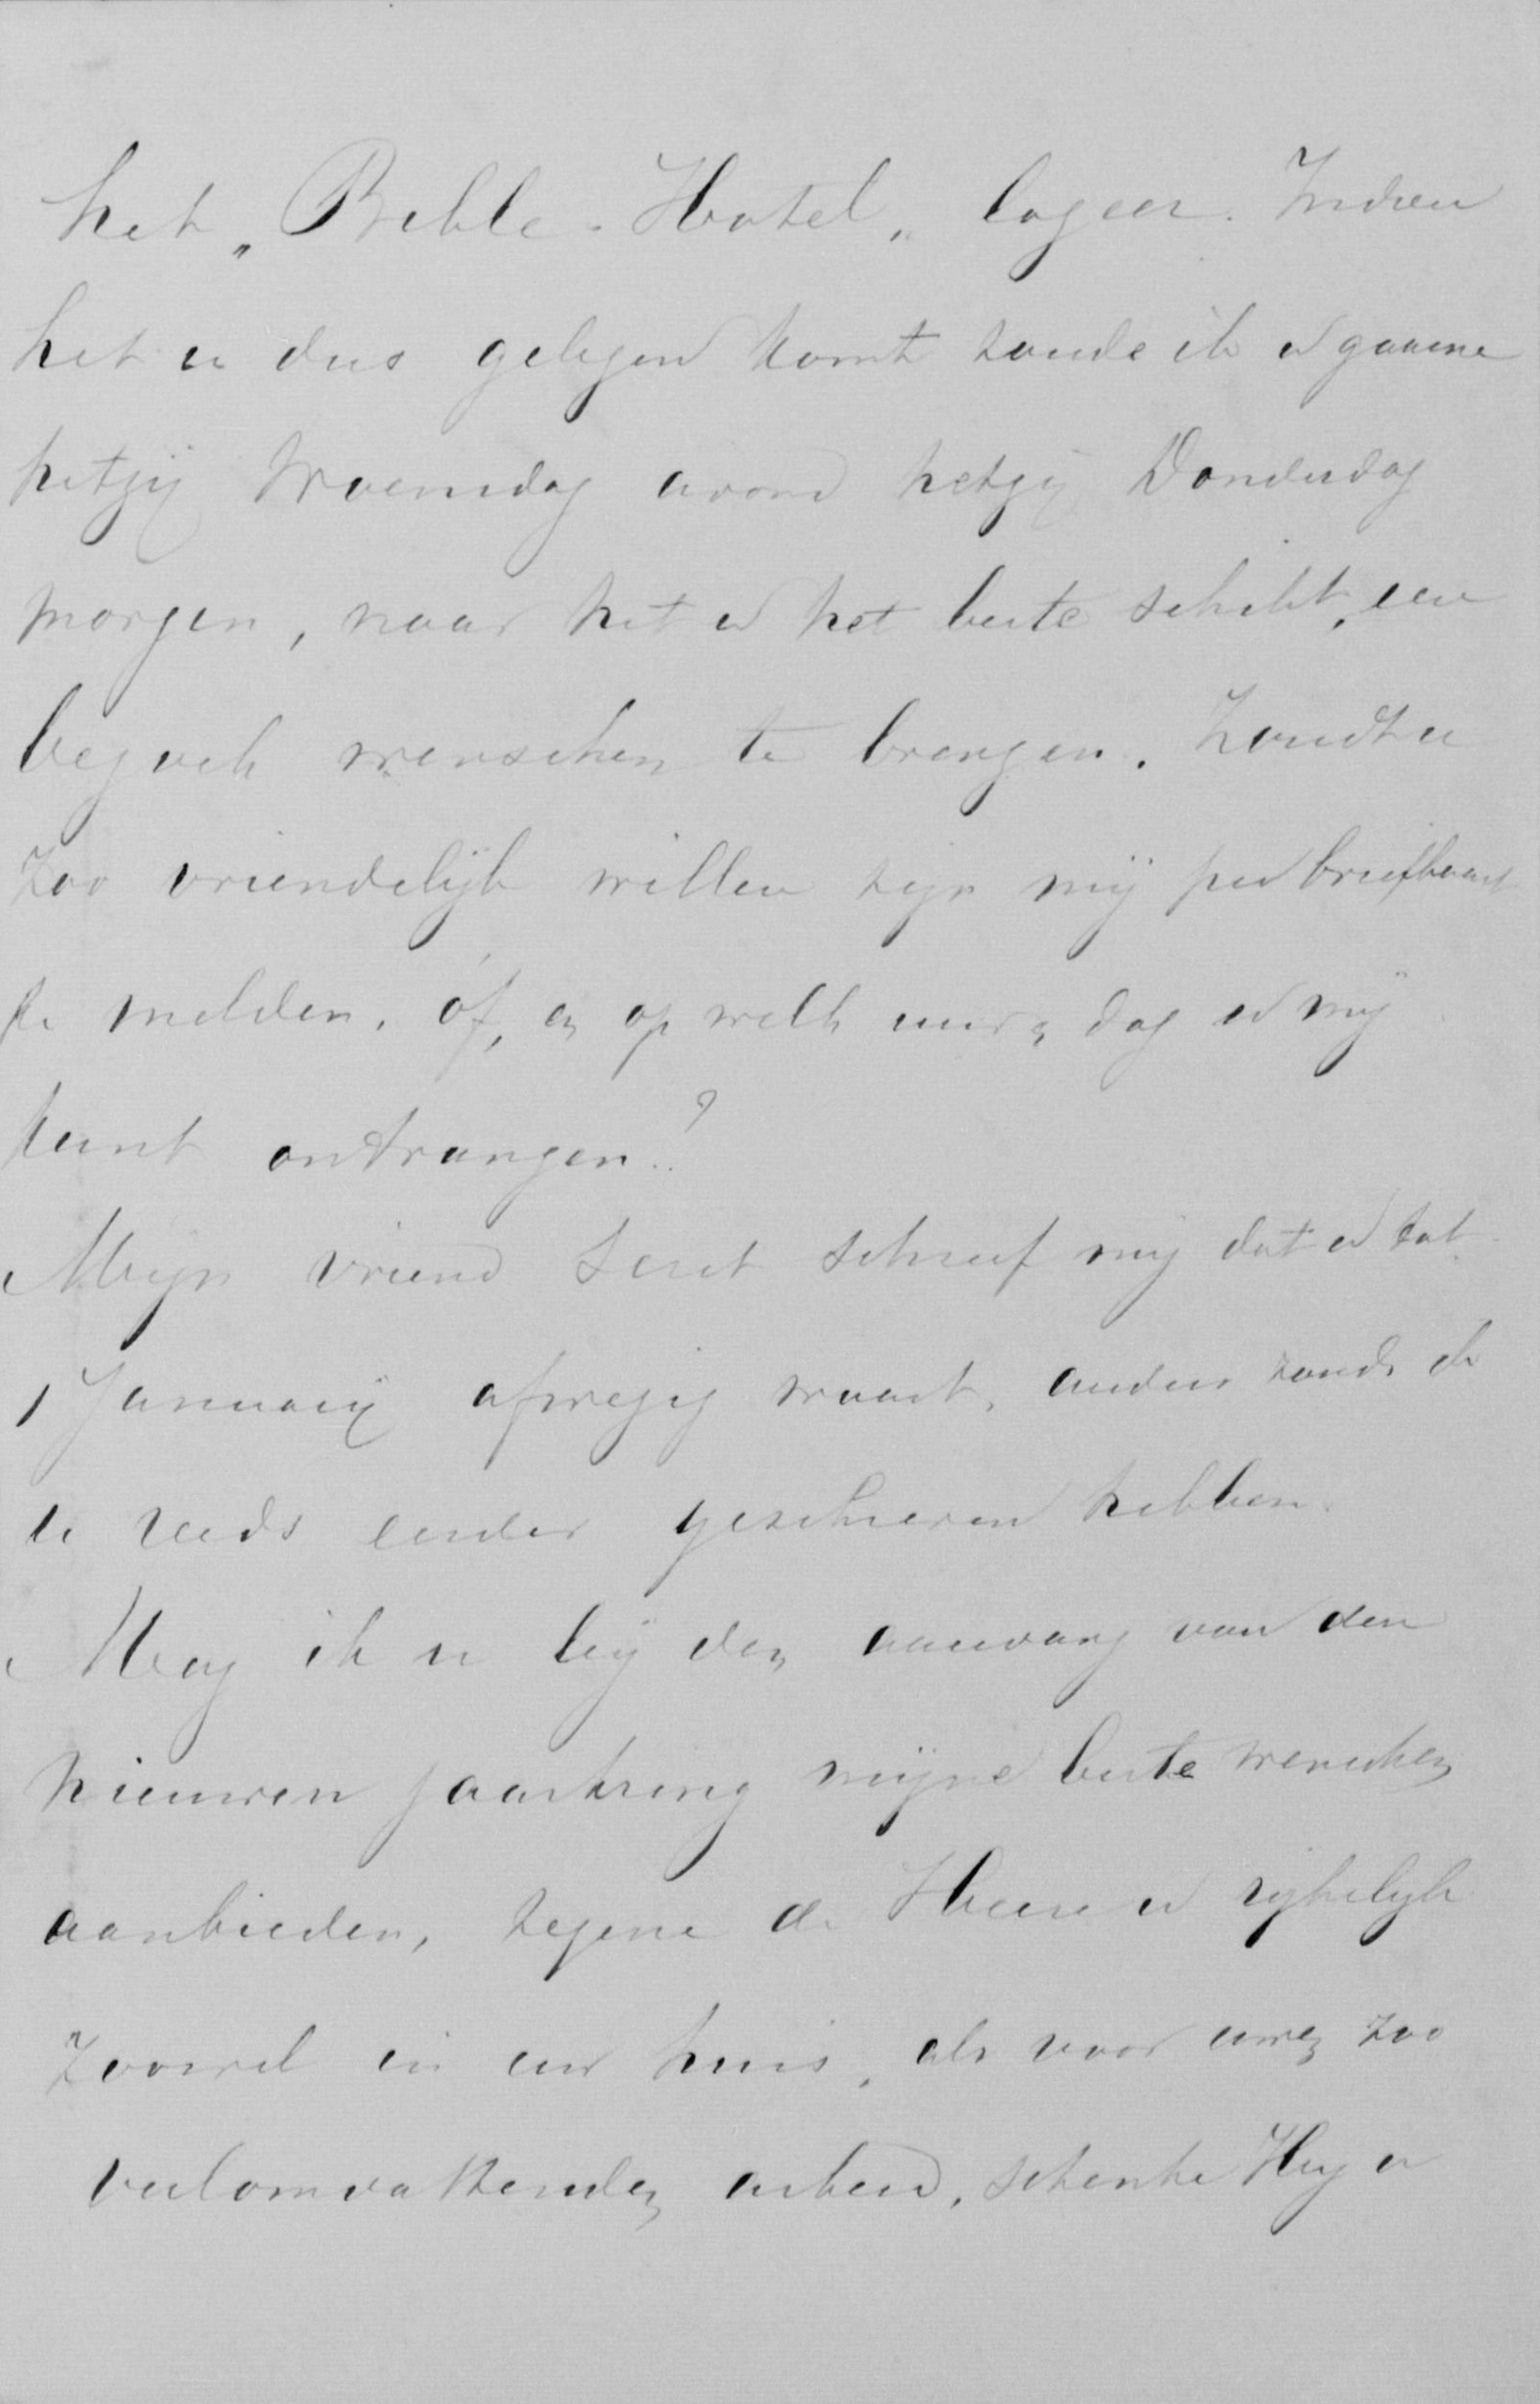 het „Bible-Hotel„ logeer. Indien
het u dus gelegen komt zoude ik u gaarne
hetzij Woensdag avond hetzij Donderdag
morgen, naar het u het beste schikt, een
bezoek wenschen te brengen. Zoudt u
zoo vriendelijk willen zijn mij per briefkaart
te melden, óf, en op welk uur en dag u mij
kunt ontvangen?
Mijn vriend schreef mij dat u tot
1 Januarij afwezig waart, anders zoude ik
u reeds eerder geschreven hebben.
Mag ik u bij den aanvang van den
nieuwen jaarkring mijne beste wenschen
aanbieden, zegene de Heere u rijkelijk
zoowel in uw huis, als voor uwen zoo
veelomvattenden arbeid, schenke Hij u